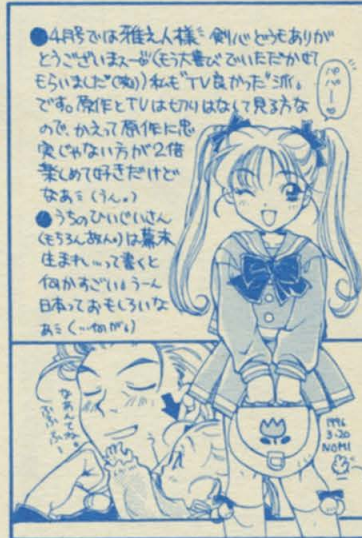 ●4月号では雅え人様 剣心どうもありが
とうございまスー(もう大喜びでいただかせて
もらいました(笑))私も"TV良かった"派。
です。原作とTVは切りはなして見る方な
ので、かえって原作に忠
実じゃない方が2倍
楽しめて好きだけど
なあ(うん。)
●うちのひいじいさん
(もちろん故人。)は幕末
生まれ…って書くと
何かすごい。うーん
日本っておもしろいな
あ(…何が。)
パパー♡
なあんてな
ふふふ
1996
3.20
NOMI